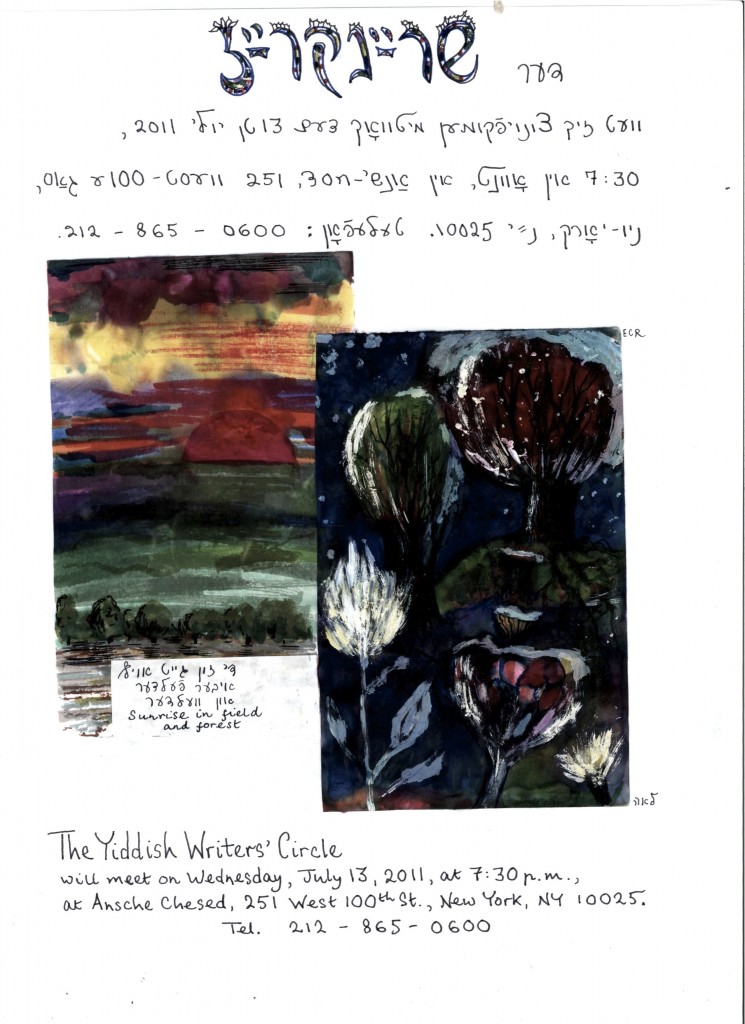 דער שרײַבקרײַז
וועט זיך צונויפֿקומען מיטוואָך דעם 13טן יולי 2011,
7:30 אין אָוונט, אין אַנשי-חסד, 251 וועסט-100ע גאַס,
ניו-יאָרק, נ״י 10025. טעלעפֿאָן: 212 - 865 - 0600.
ECR
די זון גייט אויף
איבער פֿעלדער
און וועלדער
Sunrise in field
and forest
לאה
The Yiddish Writers' Circle
will meet on Wednesday, July 13, 2011, at 7:30 p.m.,
at Ansche Chesed, 251 West 100th St., New York, NY 10025.
Tel. 212 - 865 - 0600